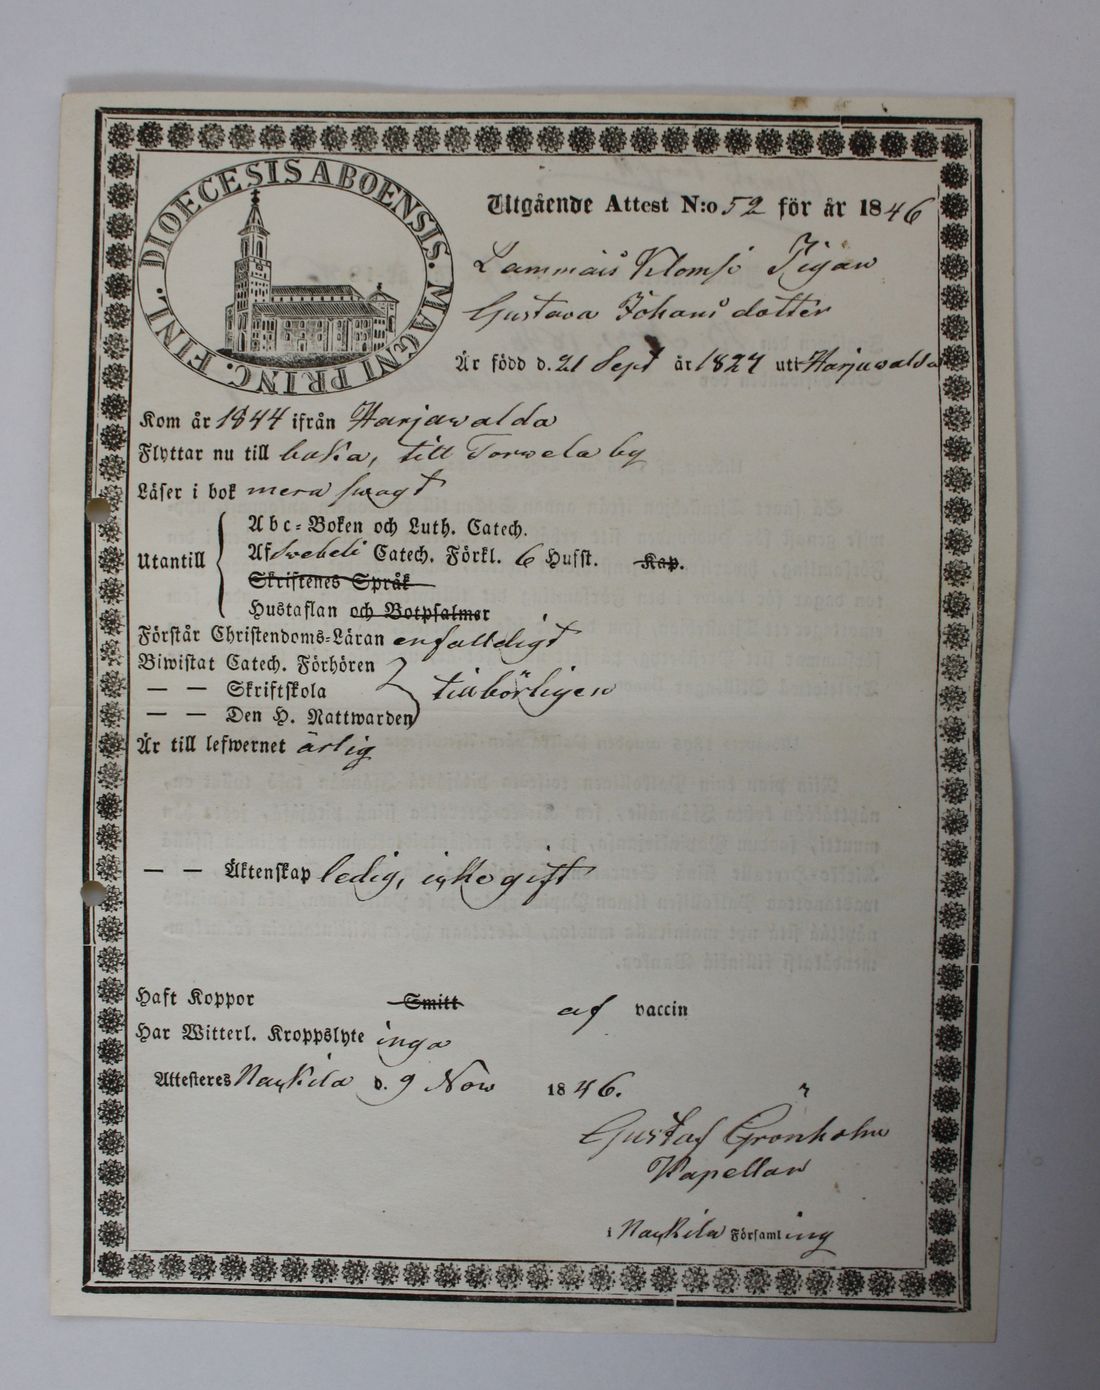 DIOECESIS ABOENSIS. MAGNI PRINC. FINL.
Utgående Attest N:o 52 för år 1846
Lammais Klomsi Pigan
Gustava Johans dotter
Är född d. 21 Sept år 1827 uti Harjawalda
Kom år 1844 ifrån Harjawalda
Flyttar nu till baka, till Torwela by
Läser i bok mera swagt
Abc-Boken och Luth. Catech.
Utantill Af Swebeli Catech. Förkl. 6 Hufst. Kap.
Skriftenes Språk
Hustaflan och Botpsalmer
Förstår Christendoms-Läran enfalldigt
Biwistat Catech. Förhören
— — Skriftskola tillbörligen
— — Den H. Nattwarden
Är till lefwernet ärlig
— — Äktenskap ledig, icke gift
Haft Koppor Smitt af vaccin
Har Witterl. Kroppslyte inga
Attesteres Nackila d. 9 Nov 1846.
Gustaf Gronholm
Kapellan
i Nackila Församling